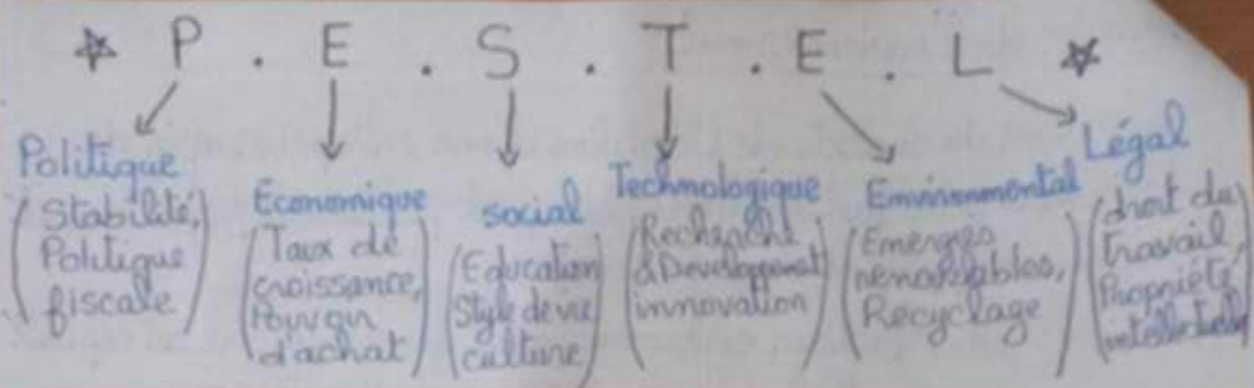 P . E . S . T . E . L
Politique
(Stabilité,
Politique
fiscale)
Économique
(Taux de
croissance,
Pouvoir
d'achat)
social
(Education
Style de vie
culture)
Technologique
(Recherche
& Developpement
innovation)
Environnmental
(Energies
renouvlables,
Recyclage)
Légal
(droit du
travail,
Propriété
intellectuelle)